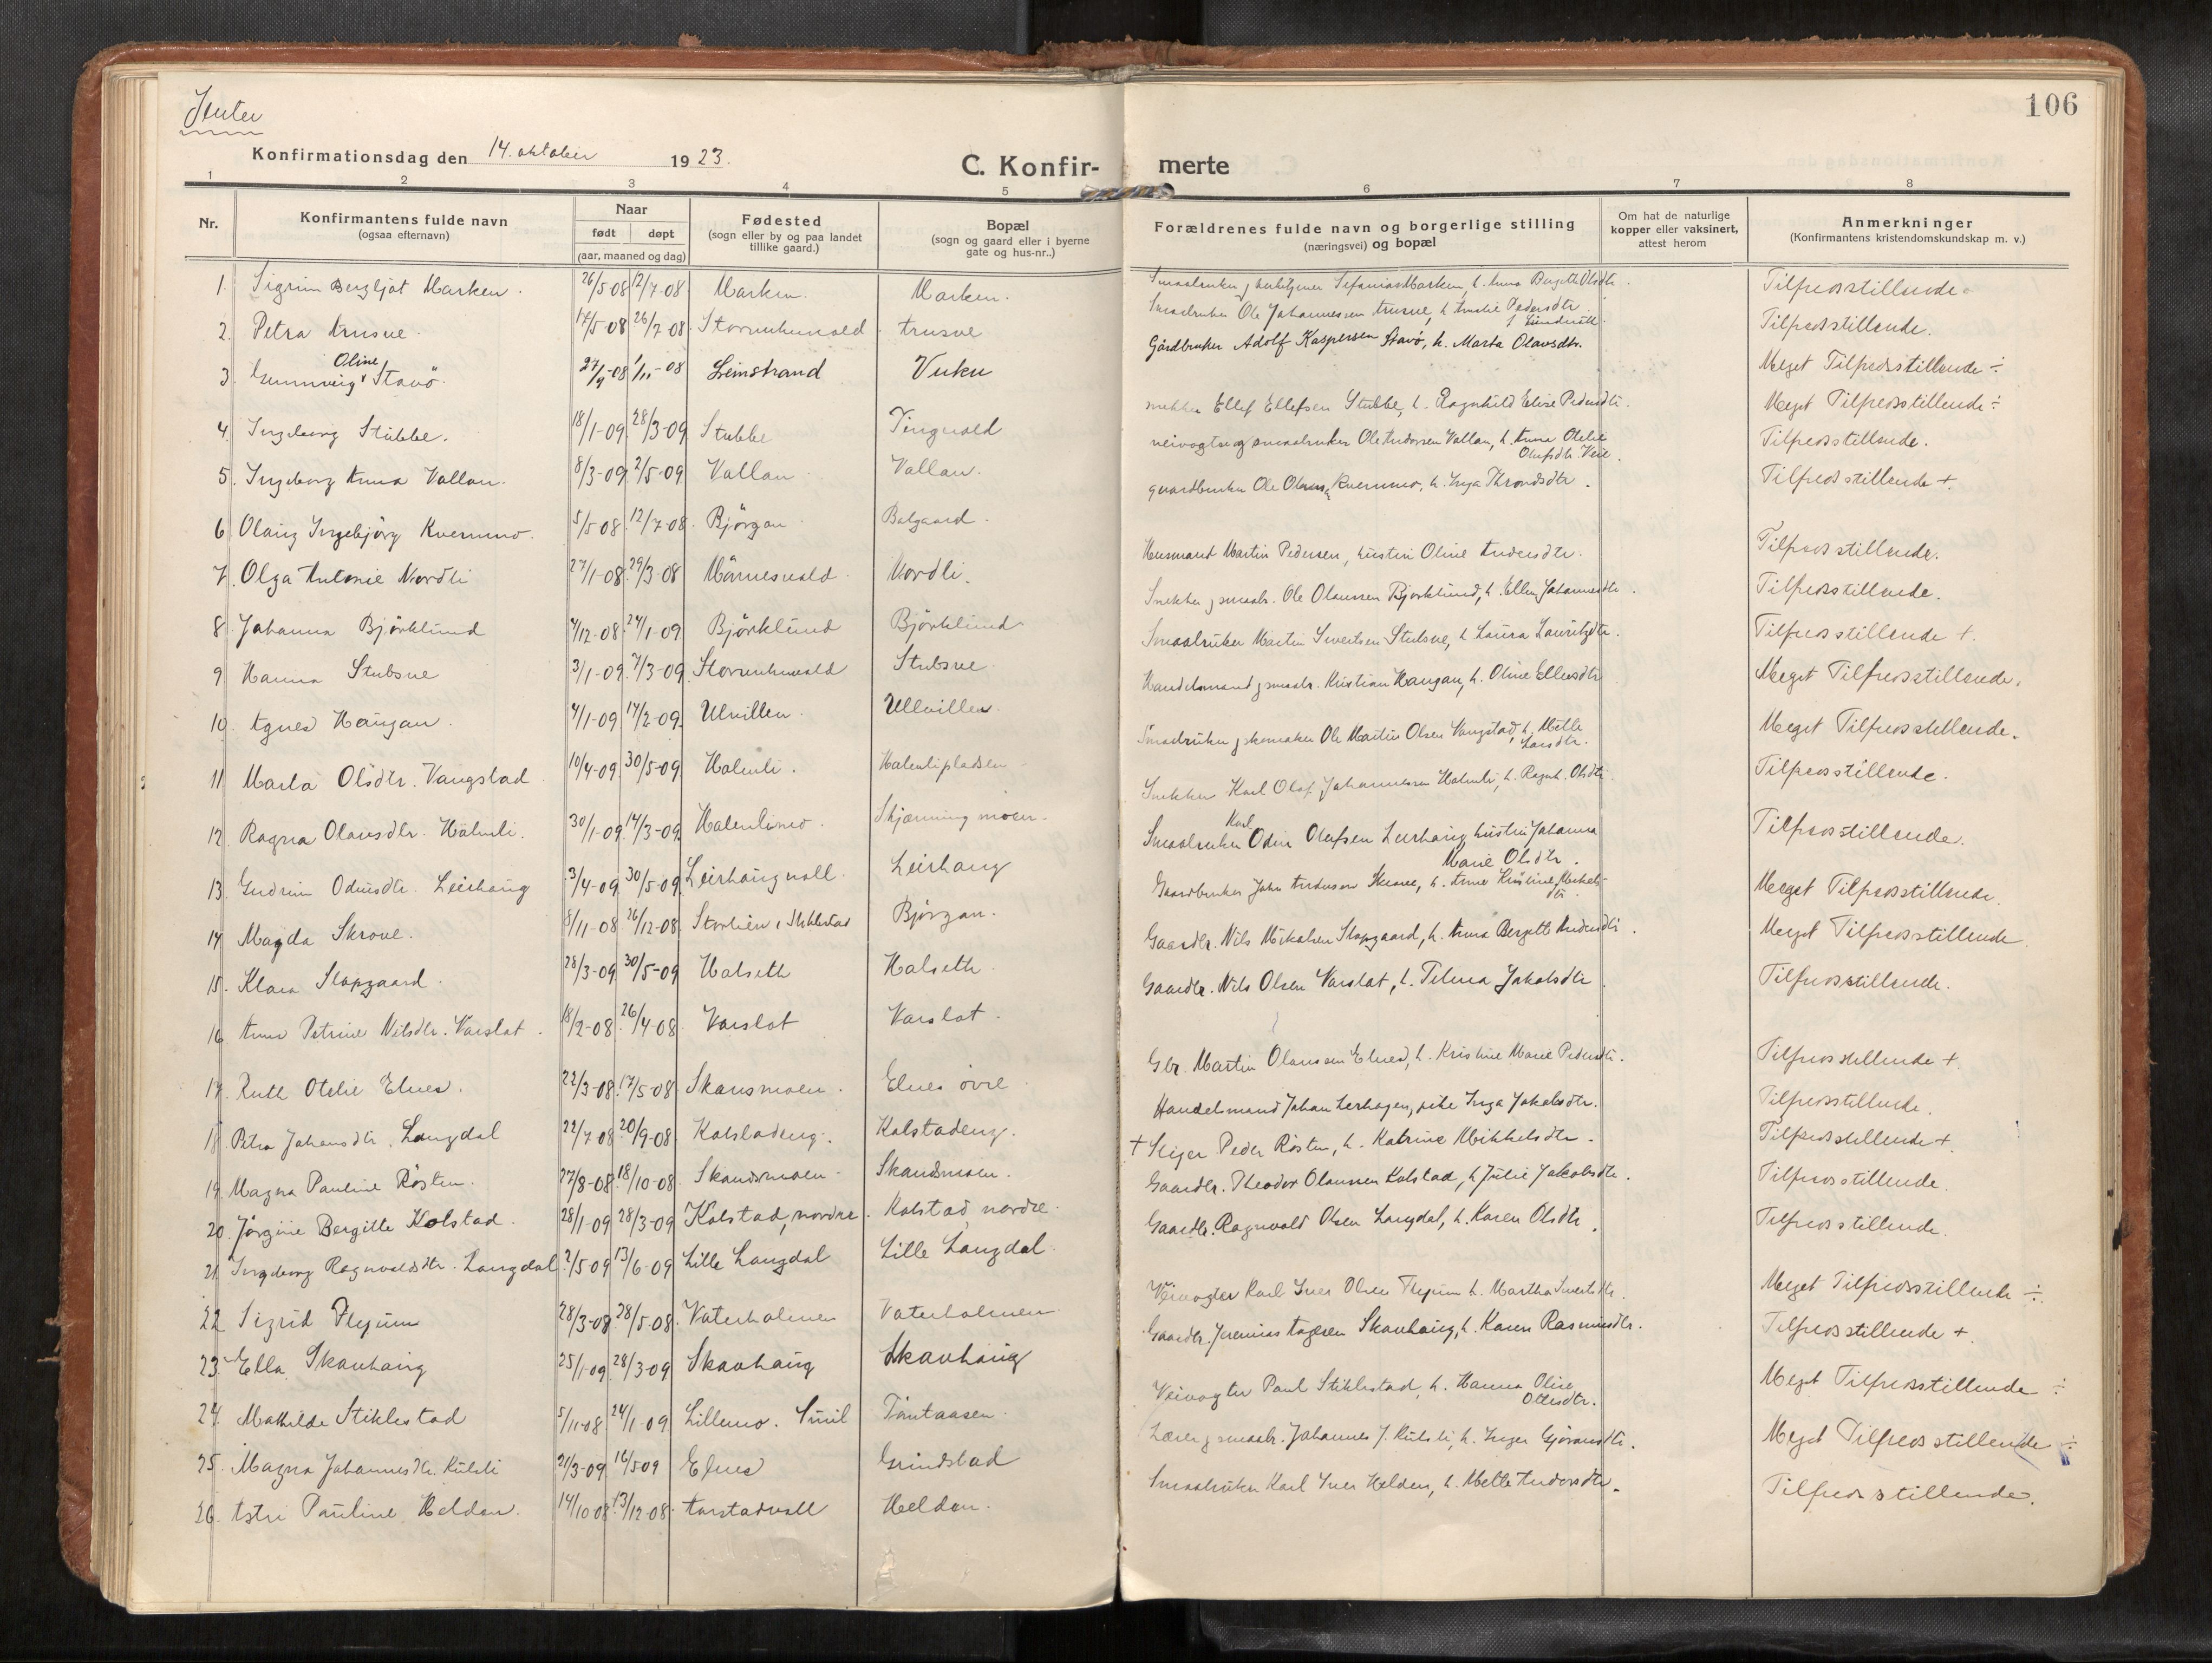 Jenter
106
Konfirmationsdag den 14. oktober 1923.
C. Konfir- merte
1 2 3 4 5 6 7 8
Nr. Konfirmantens fulde navn (ogsaa efternavn) Naar født døpt (aar, maaned og dag) Fødested (sogn eller by og paa landet tillike gaard.) Bopæl (sogn og gaard eller i byerne gate og hus-nr..) Forældrenes fulde navn og borgerlige stilling (næringsvei) og bopæl Om hat de naturlige kopper eller vaksinert, attest herom Anmerkninger (Konfirmantens kristendomskundskap m. v.)
1. Sigrun Bergljot Marken. 26/5-08 12/7-08. Marken. Marken. Smaabruker Marken, h. Anna Olsdtr. Tilfredsstillende.
2. Petra Trusve. 17/5-08 26/7-08. Trusve Smaabruker Ole Johannessen Trusve, h. Pedersdtr. Tilfredsstillende.
3. Gunnveig Oline Stavø. 27/9-08 1/11-08 Leinstrand Vuku Gårdbruker Adolf Kaspersen Stavø, h. Marta Olavsdtr. Meget Tilfredsstillende ÷
4. Ingeborg Stubbe. 18/1-09. 28/3-09 Stubbe Tingvold snekker Ellef Ellefsen Stubbe, h. Ragnhild Elise Pedersdtr. Meget Tilfredsstillende ÷
5. Ingeborg Anna Vollan. 8/3-09. 2/5-09 Vollan Vollan. veivogter og smaabruker Ole Andersen Vollan, h. Anna Otelie Olufsdtr. Tilfredsstillende.
6. Olaug Ingebjørg Kvernmo. 5/5-08. 12/7-08. Bjørgan Balgaard. gaardbruker Ole Kvernmo, h. Inga Throndsdtr. Tilfredsstillende +.
7. Olga Antonie Nordli 27/1-08. 29/3-08 Nordli. Husmand Martin Pedersen, hustru Oline Andersdtr. Tilfredsstillende.
8. Johanna Bjørklund 7/12-08. 24/1-09 Bjørklund Bjørklund Snekker j smaabr. Ole Olaussen Bjørklund, h. Ellen Johannesdtr. Tilfredsstillende.
9. Hanna Stubsve 3/1-09. 7/3-09. Stubsve Smaabruker Martin Sivertsen Stubsve, h. Laura Lauritzdtr. Tilfredsstillende +.
10. Agnes Haugan. 4/1-09 14/2-09. Ulvillen. Ullvillen. Handelsmand j smaabr. Kristian Haugan, h. Oline Ellevsdtr Meget Tilfredsstillende.
11. Marta Olsdtr. Vangstad 10/4-09. 30/5-09 Holmli. Holmlipladsen Smaabruker j skomaker Ole Martin Olsen Vangstad, h. Mette Larsdtr. Meget Tilfredsstillende.
12. Ragna Olausdtr. Holmli. 30/1-09. 14/3-09. Holmlimo. Skjørningmoen. Snekker Karl Olaf Johannessen Holmli, h. Ragnh. Olsdtr. Tilfredsstillende.
13. Gudrun Odinsdtr. Leirhaug 3/4-09. 30/5-09. Leirhaugvall. Leirhaug Smaabruker Karl Odin Olufsen Leirhaug, hustru Johanna Marie Olsdtr. Tilfredsstillende.
14. Magda Skrove. 8/11-08. 26/12-08. Stiklestad Bjørgan. Gaardbruker John Andersen Skrove, h. Anne Kristine Mikalsdtr Meget Tilfredsstillende.
15. Klara Slapgaard. 28/3-09. 30/5-09 Halseth Halseth. Gaardbr. Nils Mikalsen Slapgaard, h. Anna Bergette Andersdtr. Meget Tilfredsstillende.
16. Anna Petrine Nilsdtr. Varslot. 18/2-08. 26/4-08. Varslot Varslot. Gaardbr. Nils Olsen Varslot, h. Jakobsdtr Tilfredsstillende.
17. Ruth Otelie Elnes. 22/3-08. 17/5-08. Skansmoen. Elnes øvre Gbr. Martin Olaussen Elnes, h. Kristine Marie Pedersdtr. Tilfredsstillende +.
18. Petra Johansdtr. Langdal 22/7-08. 20/9-08. Kolstadeng. Kolstadeng. Handelsmand Johan Lerhagen, pike Inga Jakobsdtr. Tilfredsstillende.
19. Magna Pauline Røsten. 27/8-08. 18/10-08. Skandsmoen. Skandsmoen. + Stiger Peder Røsten, h. Katrine Mikkelsdtr. Tilfredsstillende +.
20. Jørgine Bergitte Kolstad. 28/1-09. 28/3-09. Kolstad, nordre. Kolstad nordre. Gaardbr. Theodor Olaussen Kolstad, h. Julie Jakobsdtr. Tilfredsstillende.
21. Ingeborg Ragnvaldsdtr. Langdal 2/5-09. 13/6-09 Lille Langdal Lille Langdal. Gaardbr. Ragnvald Olsen Langdal, h. Karen Olsdtr. Tilfredsstillende.
22. Sigrid Flyum 28/3-08. 28/5-08. Vaterholmen Vaterholmen. Veivogter Karl Iver Olsen Flyum h. Martha Sivertsdtr. Meget Tilfredsstillende ÷.
23. Ella Skavhaug 25/1-09. 28/3-09 Skavhaug Skavhaug Gaardbr. Jeremias Aagesen Skavhaug, h. Karen Rasmusdtr. Tilfredsstillende +.
24. Mathilde Stiklestad 5/11-08. 24/1-09 Lillemo. Veivogter Paul Stiklestad, h. Hanna Oline Ottesdtr. Meget Tilfredsstillende ÷
25. Magna Johannesdtr. Kulsli 21/3-09. 16/5-09 Elnes Grindstad Lærer j smaabr. Johannes J. Kulsli, h. Inger Gjøransdtr. Meget Tilfredsstillende ÷
26. Astri Pauline Helden. 14/10-08. 13/12-08. Aarstadvall Helden. Smaabruker Karl Iver Helden, h. Mette Andersdtr. Tilfredsstillende.